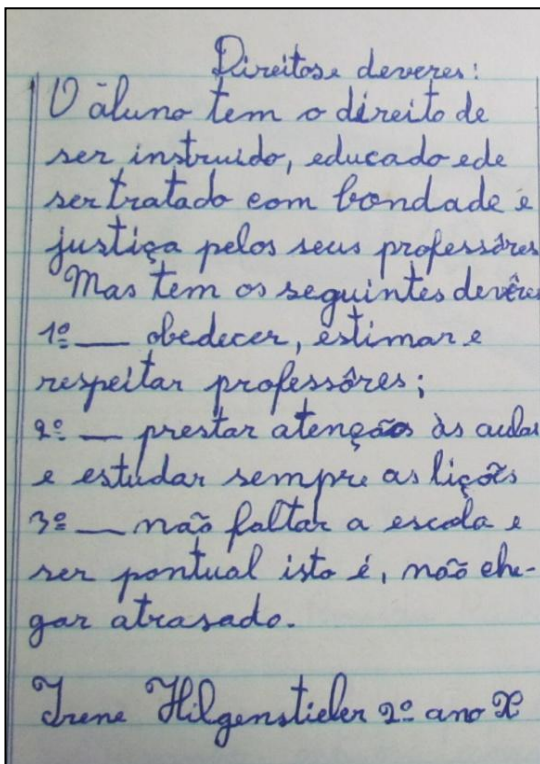 Direitos e deveres:
O áluno tem o direito de
ser instruido, educado e de
ser tratado com bondade é
justiça pelos seus professôres
Mas tem os seguintes devêres
1º — obedecer, estimar e
respeitar professôres;
2º — prestar atenção às aulas
e estudar sempre as liçõs
3º — não faltar a escola e
ser pontual isto é, não che-
gar atrasado.
Irene Hilgenstieler 2º ano X